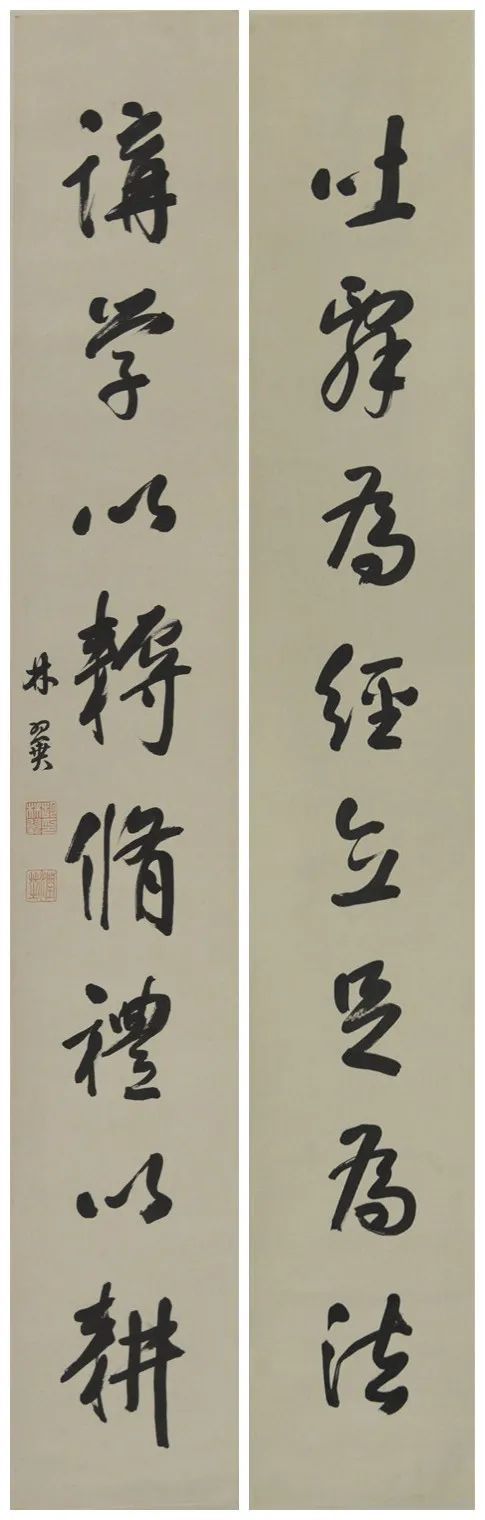 吐辭為經立足為法
講学以耨脩禮以耕
林翼